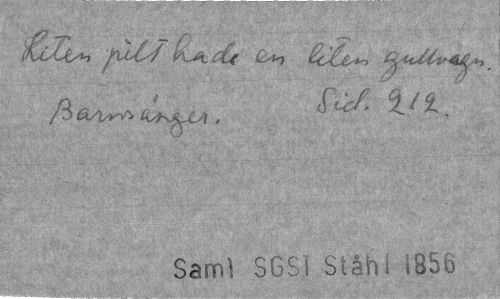 Liten pilt hade en liten gullvagn.
Barnsånger. Sid. 212.
Saml SGSI Ståhl 1856